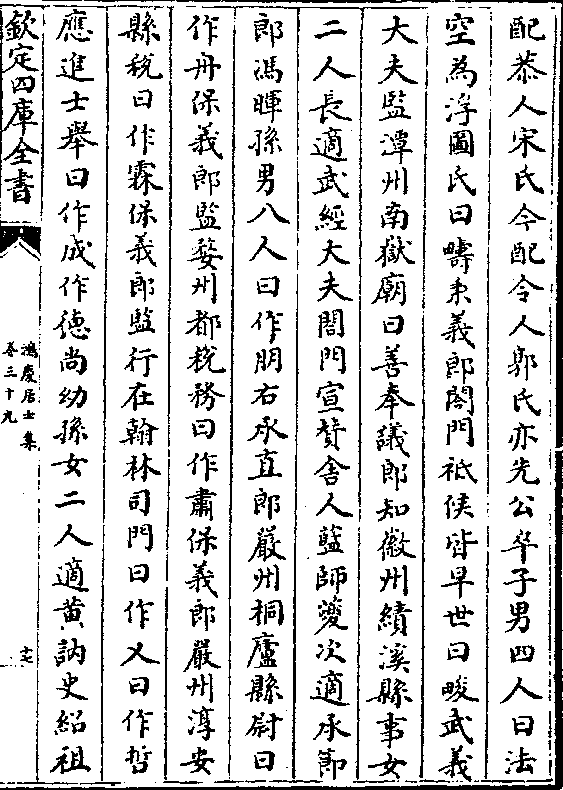 配恭人宋氏今配令人郭氏亦先公卒子男四人曰法
空為浮圖氏曰疇秉義郎閤門祗候皆早世曰畯武義
大夫監潭州南嶽廟曰善奉議郎知徽州績溪縣事女
二人長適武經大夫閤門宣賛舍人藍師夔次適承節
郎馮暉孫男八人曰作朋右承直郎嚴州桐廬縣尉曰
作舟保義郎監婺州都税務曰作肅保義郎嚴州淳安
縣税曰作霖保義郎監行在翰林司門曰作乂曰作哲
應進士舉曰作成作德尚幼孫女二人適黄訥史紹祖
欽定四庫全書
鴻慶居士集
卷三十九
十七